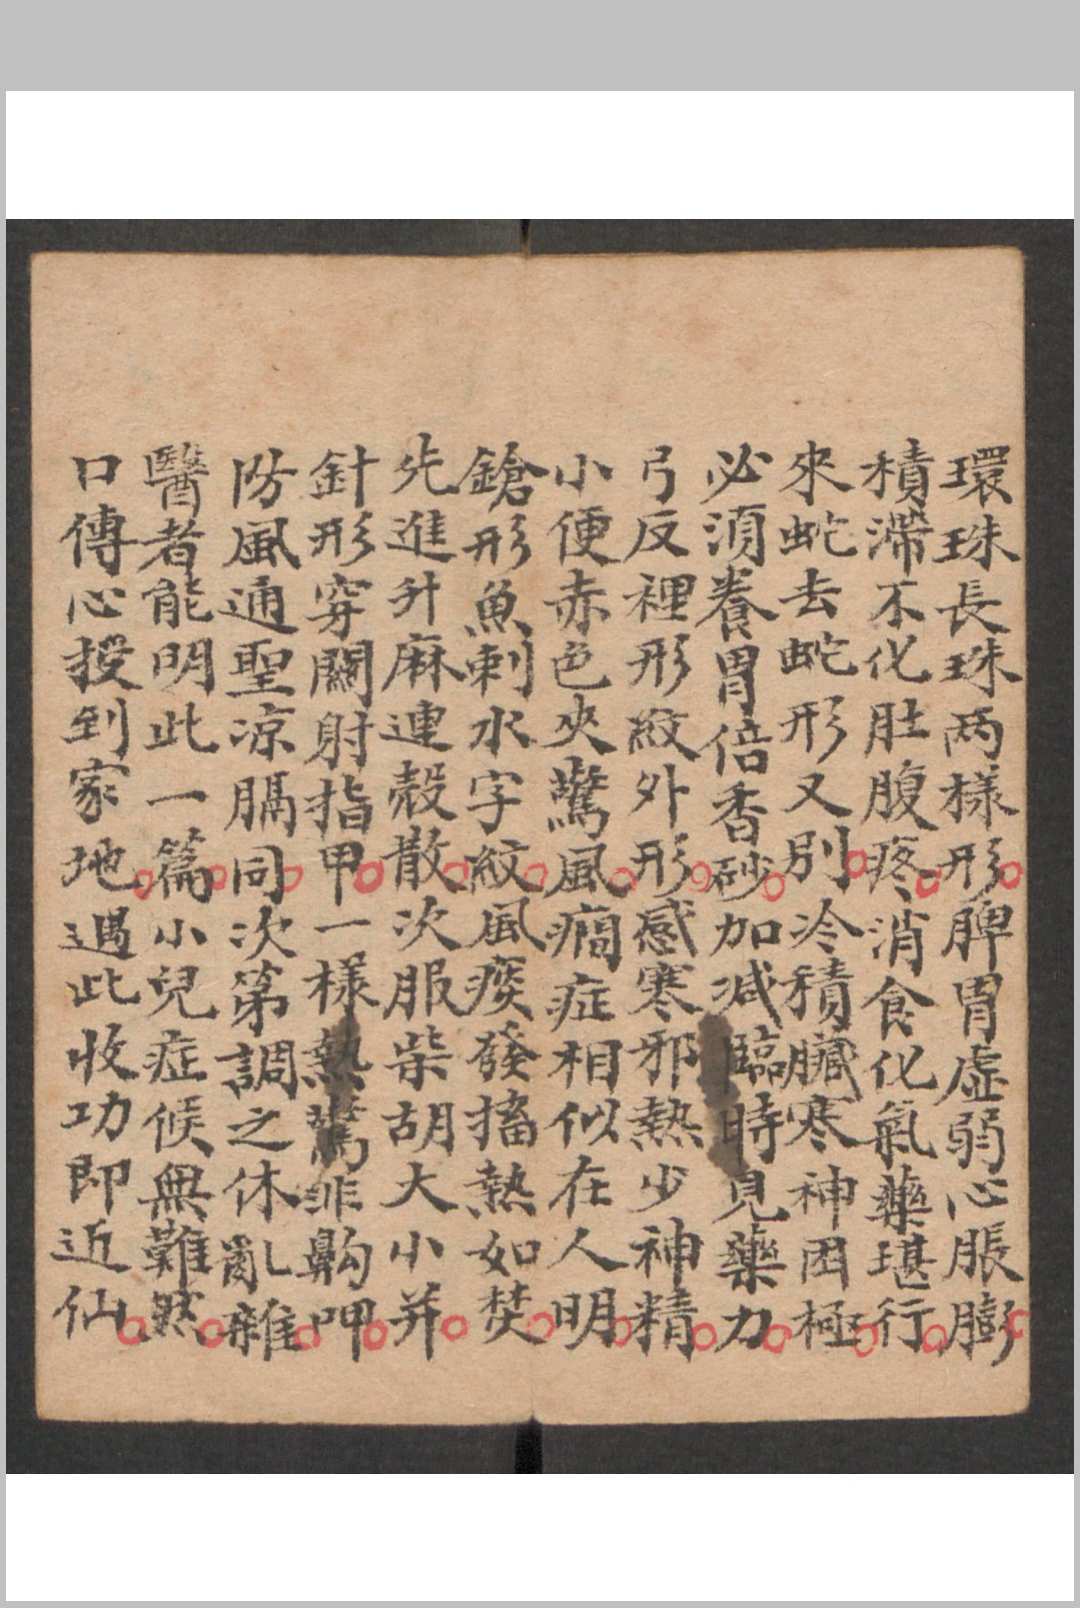 環珠長珠两樣形脾胃虛弱心脹膨
積滯不化肚腹疼消食化氣藥堪行
來蛇去蛇形又別冷積臟寒神困極
必須養胃倍香砂加減臨時見藥力
弓反裡形紋外形感寒邪熱少神精
小便赤色夾驚風癇症相似在人明
鎗形魚刺水字紋風痰發搐熱如焚
先進升麻連殼散次服柴胡大小并
針形穿關射指甲一樣熱驚非齁呷
防風通聖凉膈同次第調之休亂雜
醫者能明此一篇小兒症候無難然
口傳心授到家地遇此收功即近仙